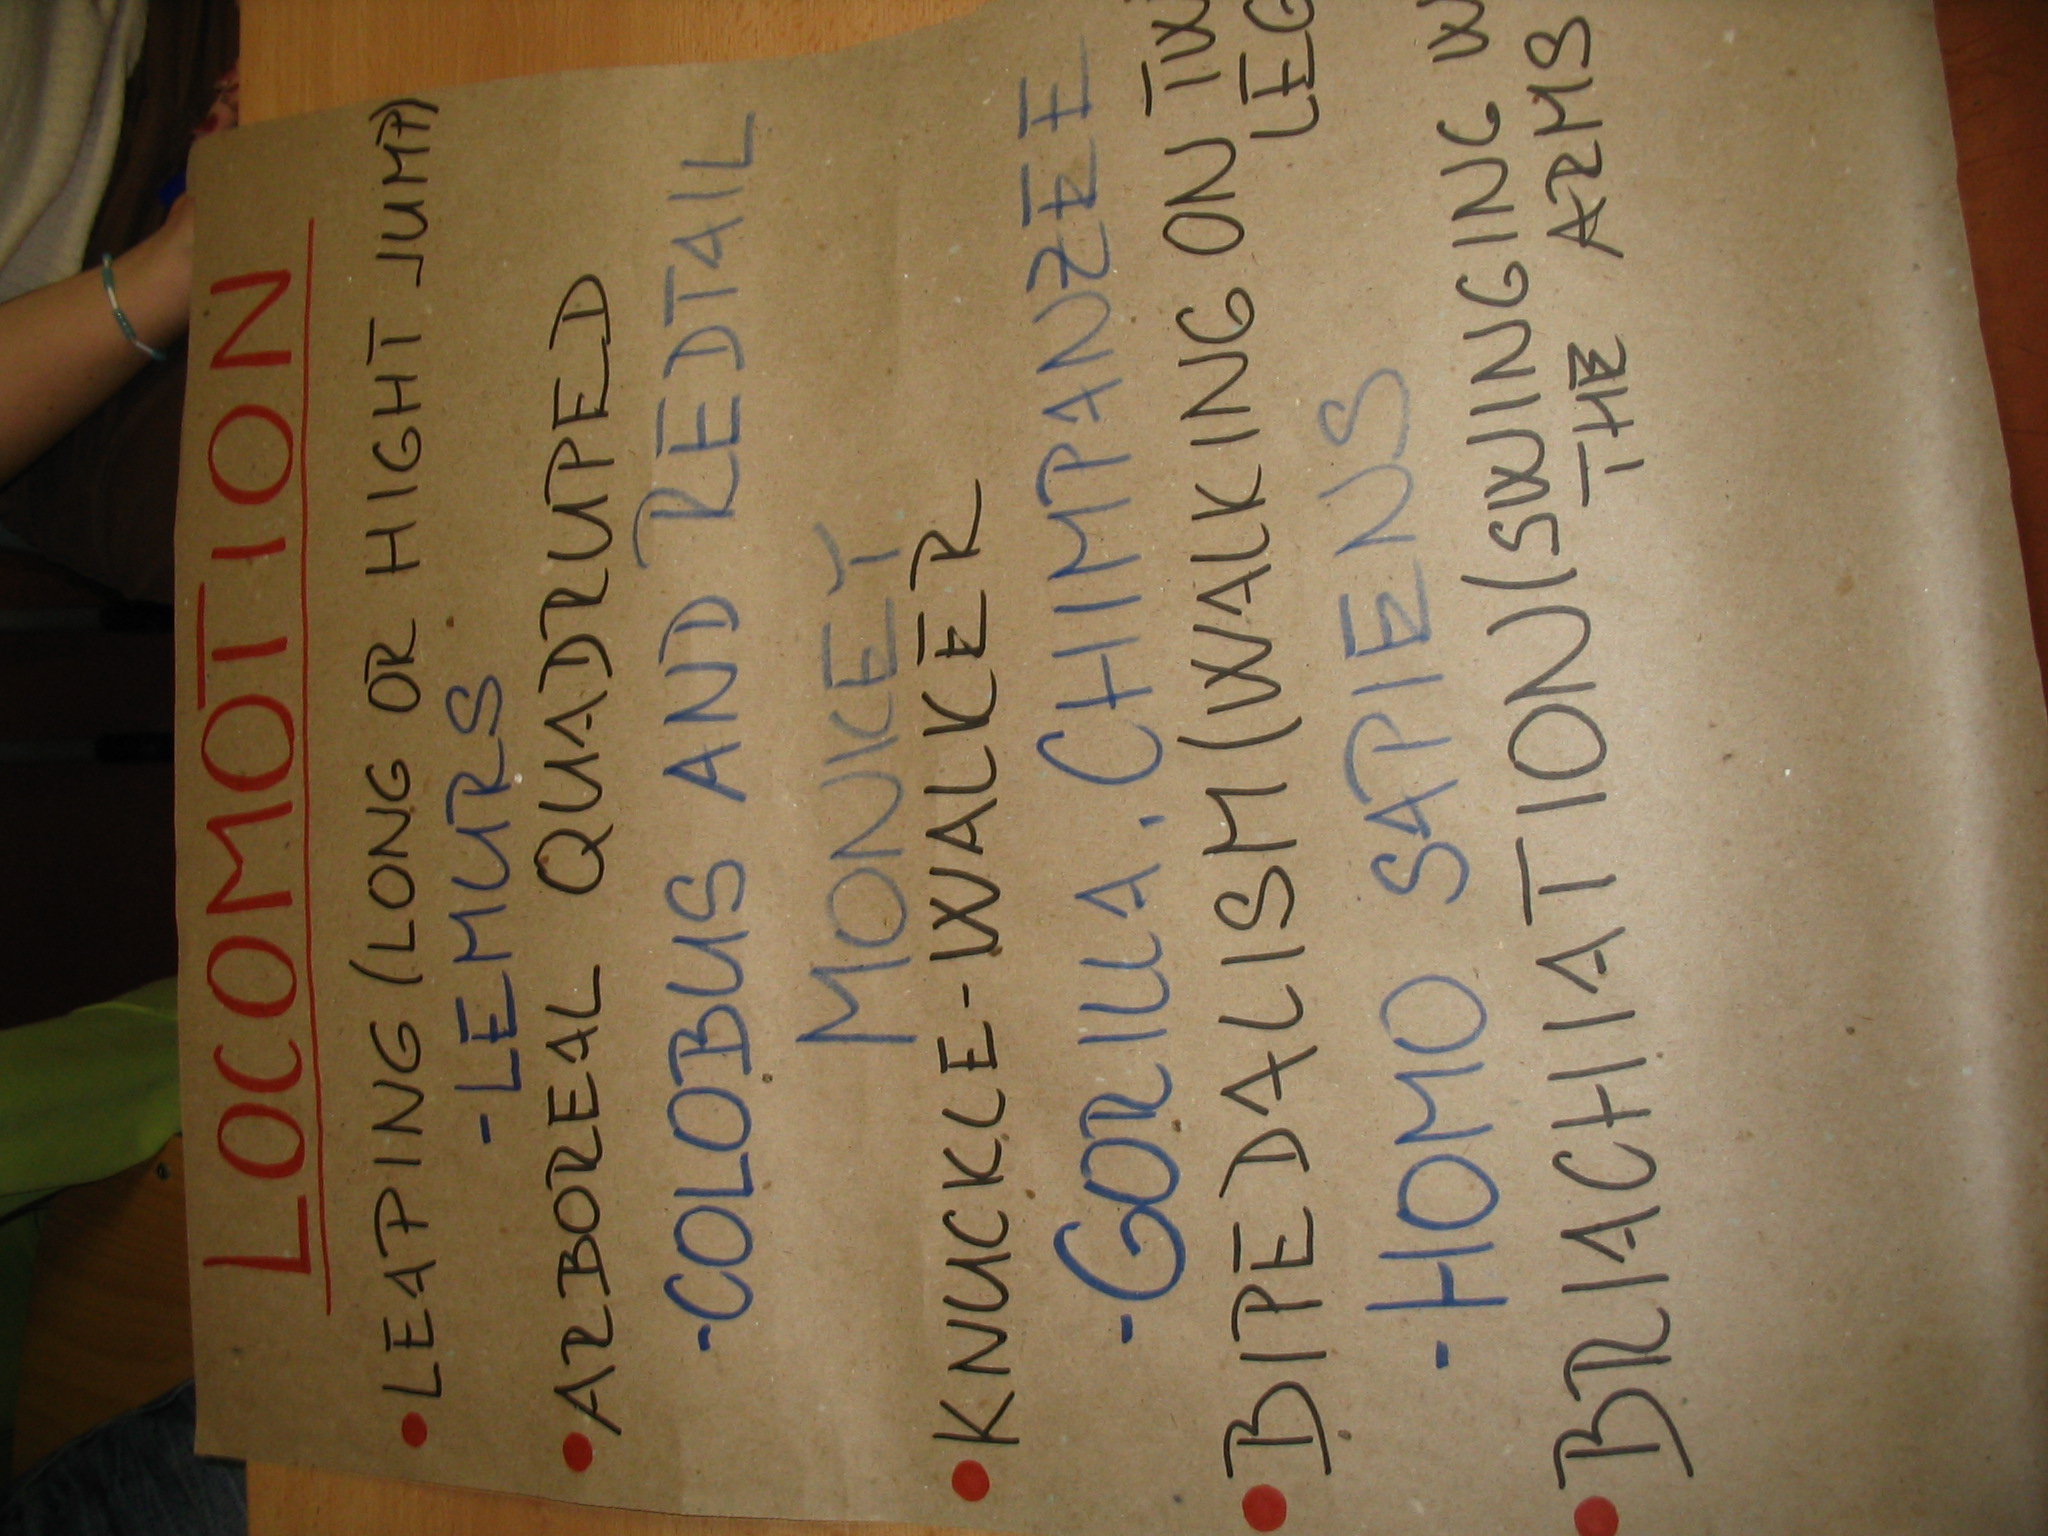 LOCOMOTION
LEAPING (LONG OR HIGHT JUMP)
-LEMURS
ARBOREAL QUADRUPED
-COLOBUS AND REDTAIL
MONKEY
KNUCKLE-WALKER
-GORILLA. CHIMPANZEE
BIPEDALISM (WALKING ON
-HOMO SAPIENS
BRIACHIATION (SWINGING
THE ARMS